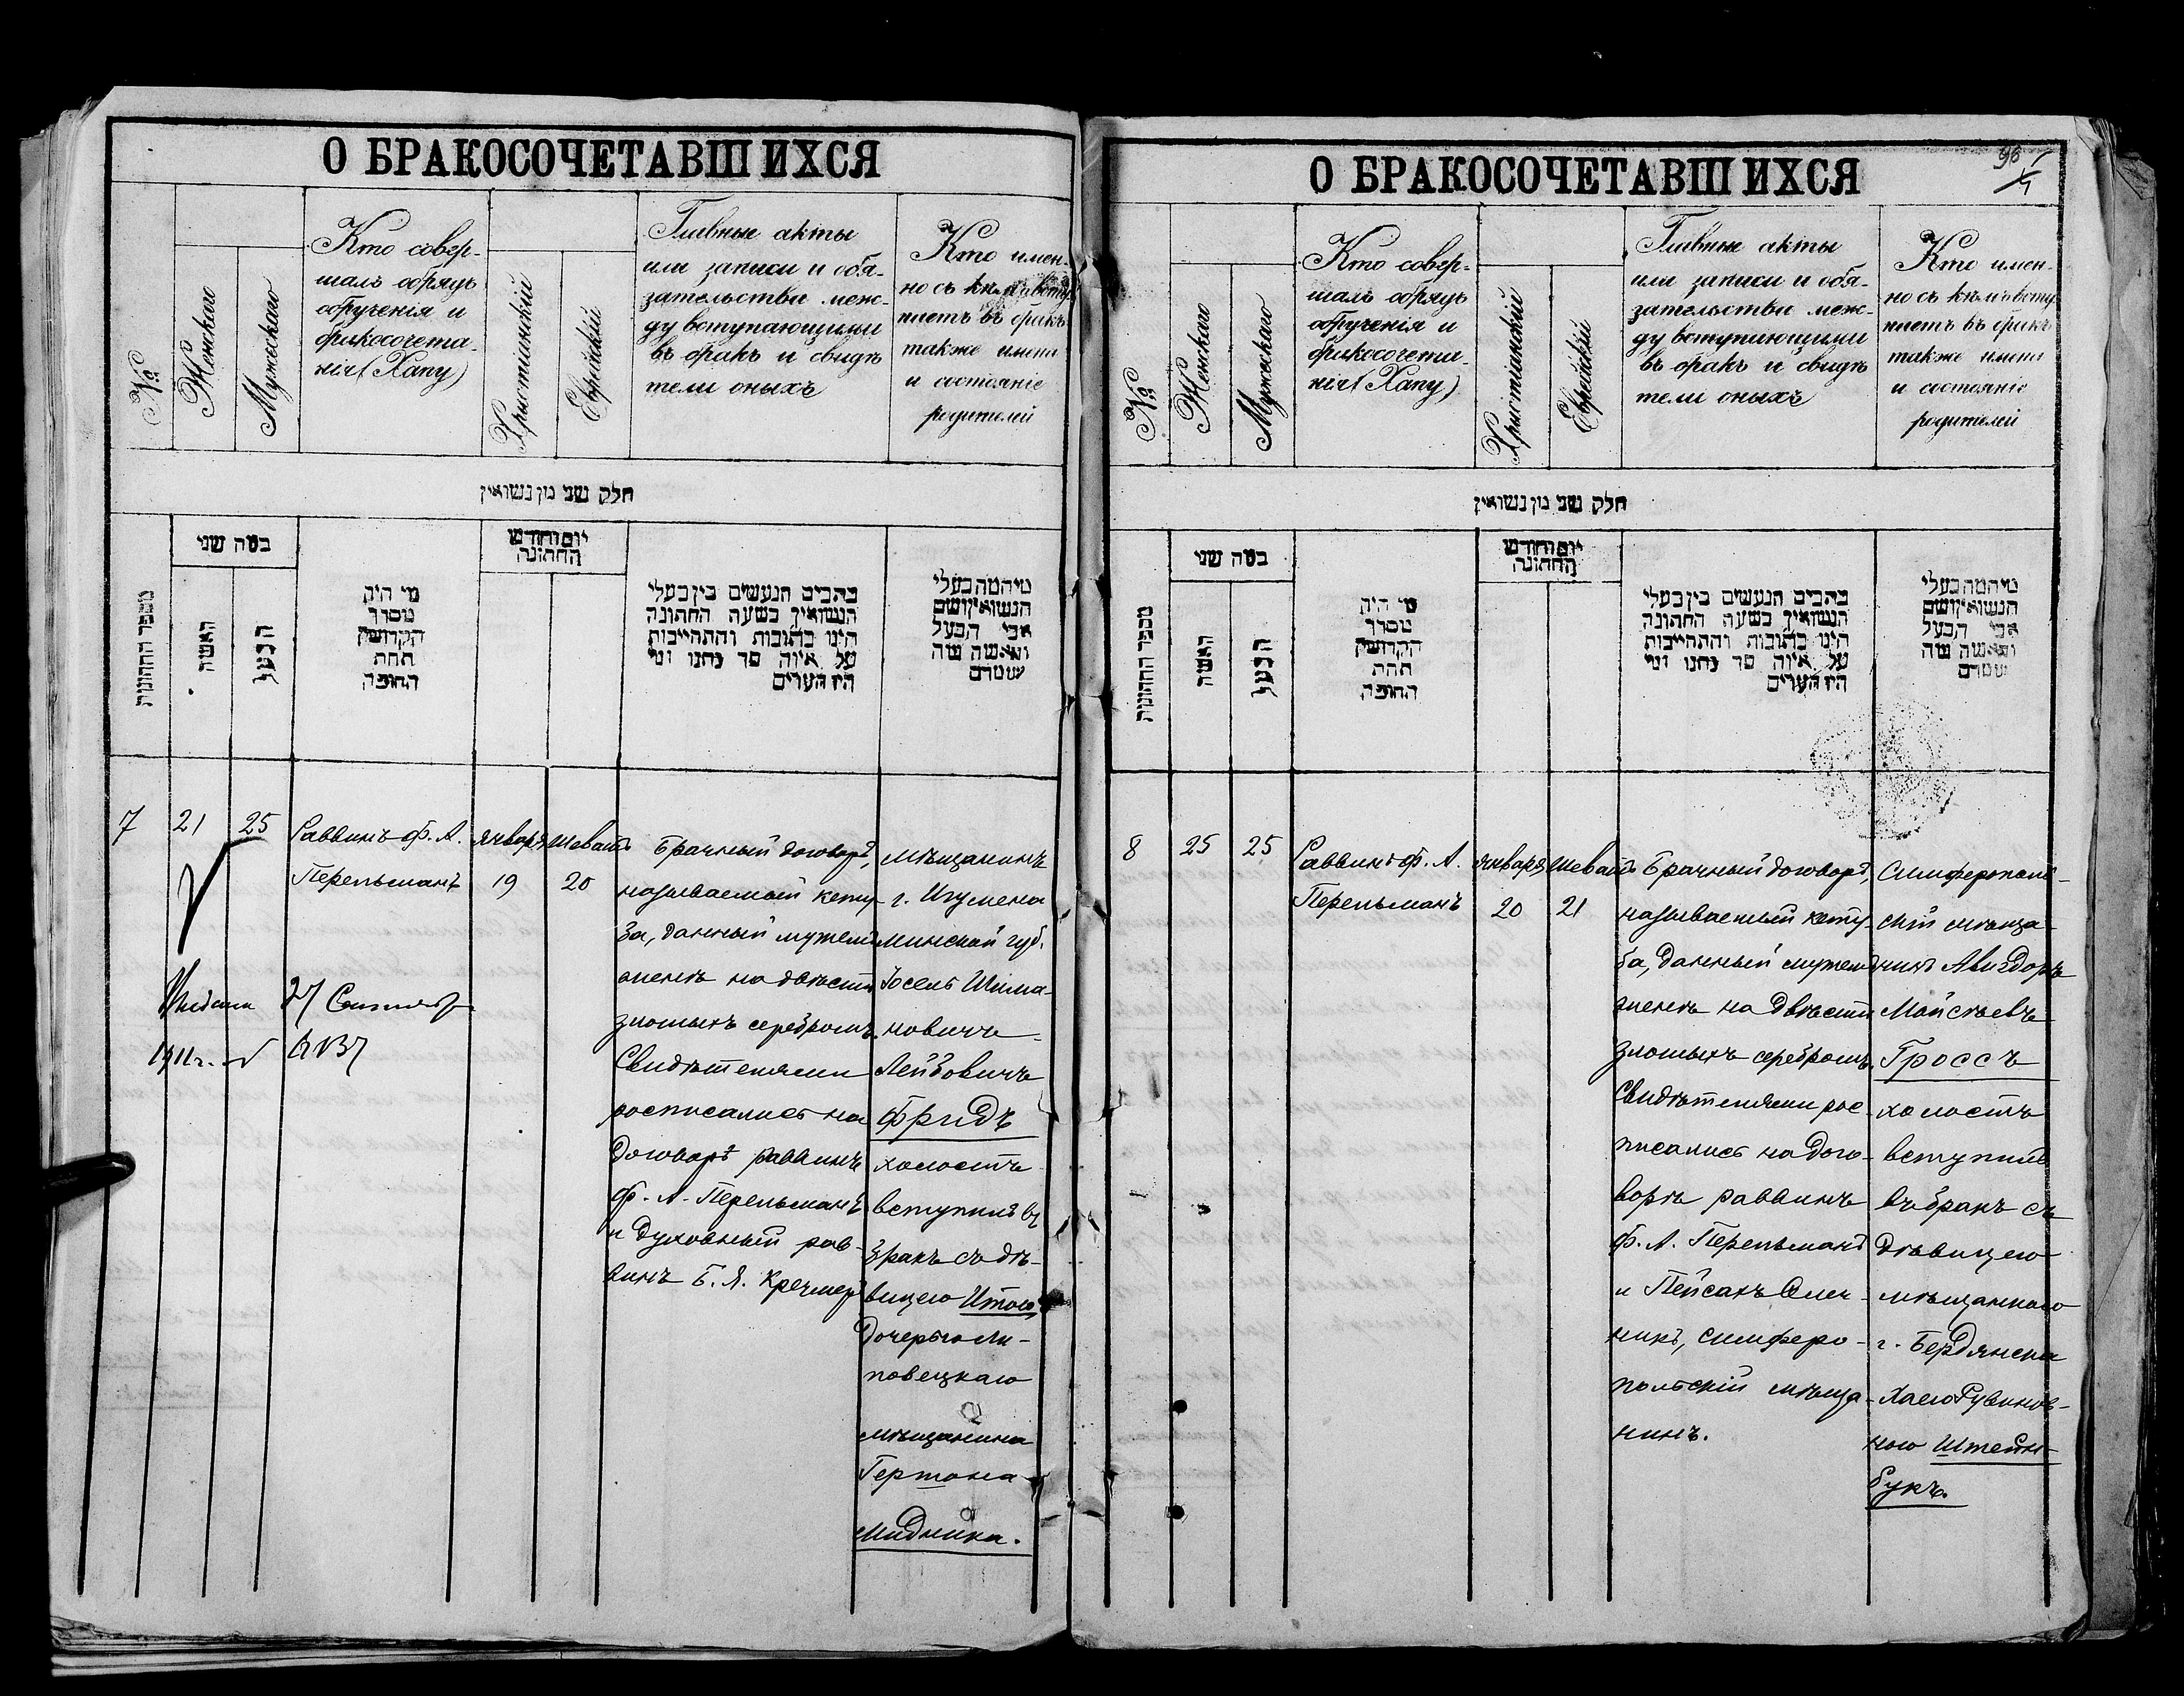 О БРАКОСОЧЕТАВШИХСЯ
№
Женскаго
Мужескаго
Кто совер-
шалъ обрядъ
обрученія и
бракосочета-
нія (Хапу)
Христіанскій
Еврейскій
Главные акты
или записи и обя-
зательства меж-
ду вступающими
въ бракъ и свидѣ
тели оныхъ
Кто имен-
но съ кѣмъ всту
паетъ въ бракъ
также имена
и состояніе
родителей
חלק שני מן נשואין
מספר החתונות
במה שני
האשה
הבעל
מי היה
מסדר
הקדושין
תחת
החופה
יום וחודש
החתונה
כתבים הנעשים בין בעלי
הנשואין בשעת החתונה
היינו כתובות והתחייבות
על איזה סך נתנו ומי
היו העדים
מי המה בעלי
הנשואין ושם
אבי הבעל
והאשה ומה
שמם
7
21
25
Раввинъ Ф. А.
Перельманъ
Января
19
Шеватъ
20
Брачный договоръ,
называемый кету-
ба, данный мужемъ
женѣ на двѣсти
злотыхъ серебромъ.
Свидѣтелями
росписались на
договорѣ раввинъ
Ф. А. Перельманъ
и духовный рав-
винъ Б. Я. Кречмеръ
мѣщанинъ
г. Игумена
Минской губ.
Іосель Шима-
новичъ
Лейбовичъ
Фридъ
холостъ
вступилъ въ
бракъ съ дѣ-
вицею Итою,
дочерью Ли-
повецкаго
мѣщанина
Гершона
Мидника.
27
1911 г.
О БРАКОСОЧЕТАВШИХСЯ
96
№
Женскаго
Мужескаго
Кто совер-
шалъ обрядъ
обрученія и
бракосочета-
нія (Хапу)
Христіанскій
Еврейскій
Главные акты
или записи и обя-
зательства меж-
ду вступающими
въ бракъ и свидѣ
тели оныхъ
Кто имен-
но съ кѣмъ всту
паетъ въ бракъ
также имена
и состояніе
родителей
חלק שני מן נשואין
מספר החתונות
במה שני
האשה
הבעל
מי היה
מסדר
הקדושין
תחת
החופה
יום וחודש
החתונה
כתבים הנעשים בין בעלי
הנשואין בשעת החתונה
היינו כתובות והתחייבות
על איזה סך נתנו ומי
היו העדים
מי המה בעלי
הנשואין ושם
אבי הבעל
והאשה ומה
שמם
8
25
25
Раввинъ Ф. А.
Перельманъ
Января
20
Шеватъ
21
Брачный договоръ,
называемый кету-
ба, данный мужемъ
женѣ на двѣсти
злотыхъ серебромъ.
Свидѣтелями рос-
писались на дого-
ворѣ раввинъ
Ф. А. Перельманъ
и Пейсахъ Олей-
никъ, симферо-
польскій мѣща-
нинъ.
Симферополь-
скій мѣща-
нинъ Авигдоръ
Мойсѣевъ
Гроссъ
холостъ
вступилъ
въ бракъ съ
дѣвицею
мѣщанкою
г. Бердянска
Хаею Рувинов-
ною Штейн-
букъ.